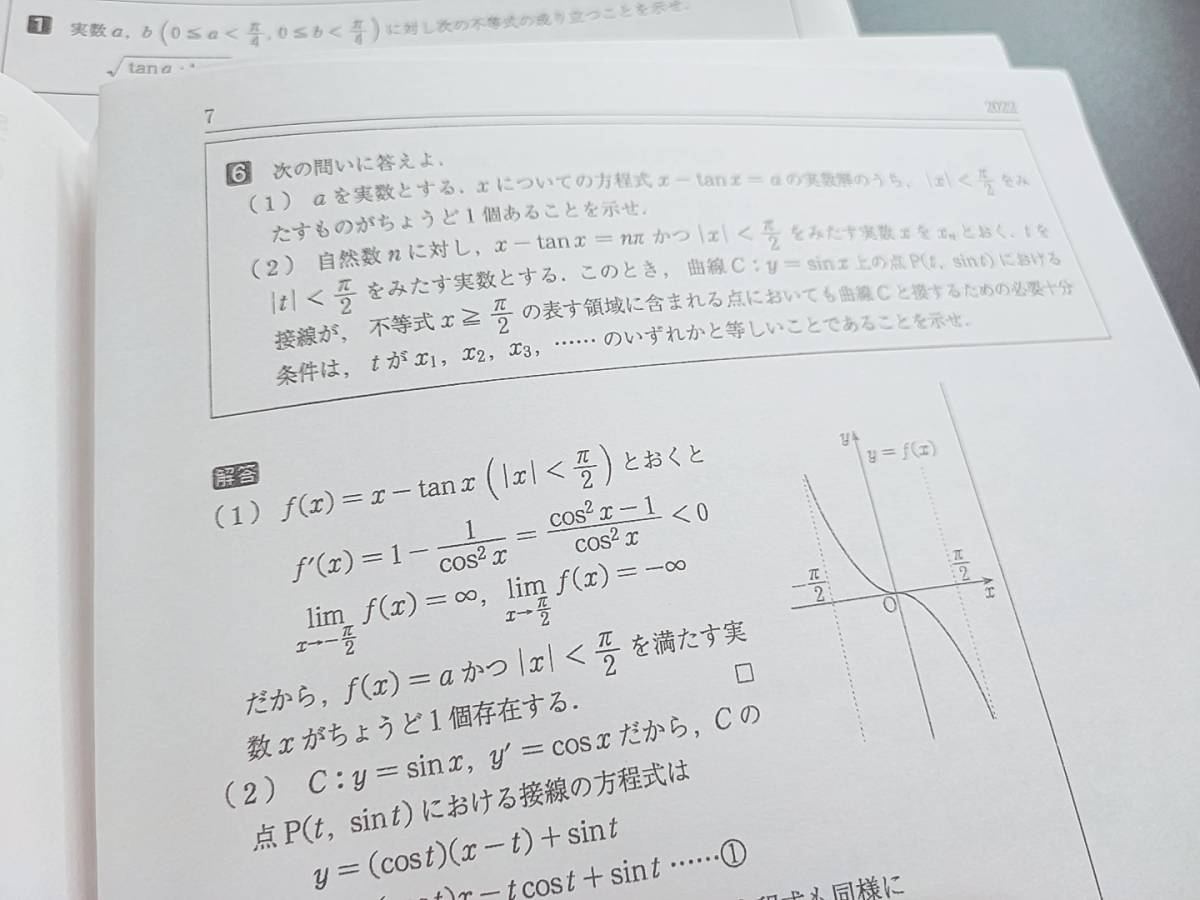 1 実数a, b (0≦a<π/4, 0≦b<π/4) に対し次の不等式の成り立つことを示せ.
√tan a・
7
2022
6 次の問いに答えよ.
(1) aを実数とする. xについての方程式 x−tan x=a の実数解のうち, |x|<π/2 をみ
たすものがちょうど1個あることを示せ.
(2) 自然数nに対し, x−tan x=nπ かつ |x|<π/2 をみたす実数xをxₙとおく. tを
|t|<π/2 をみたす実数とする. このとき, 曲線C:y=sin x上の点P(t, sin t)における
接線が, 不等式 x≧π/2 の表す領域に含まれる点においても曲線Cと接するための必要十分
条件は, tがx₁, x₂, x₃, ……のいずれかと等しいことであることを示せ.
解答
(1) f(x)=x−tan x (|x|<π/2) とおくと
f′(x)=1−1/cos²x=(cos²x−1)/cos²x<0
lim_{x→−π/2} f(x)=∞, lim_{x→π/2} f(x)=−∞
だから, f(x)=a かつ |x|<π/2 を満たす実
数xがちょうど1個存在する. □
(2) C:y=sin x, y′=cos x だから, Cの
点P(t, sin t)における接線の方程式は
y=(cos t)(x−t)+sin t
t)x−t cos t+sin t ……①
程式も同様に
y
y=f(x)
−π/2
O
π/2
x